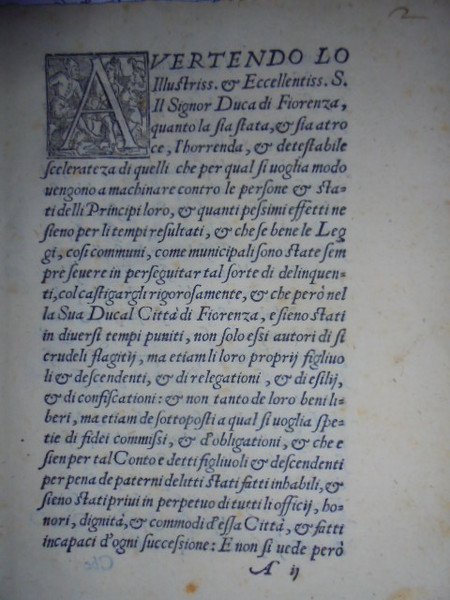 2
AVERTENDO LO
Illustriss. & Eccellentiss. S.
Il Signor Duca di Fiorenza,
quanto la sia stata, & sia atro
ce, l'horrenda, & detestabile
scelerateza di quelli che per qual si uoglia modo
uengono a machinare contro le persone & sta-
ti delli Principi loro, & quanti pessimi effetti ne
sieno per li tempi resultati, & che se bene le Leg
gi, cosi communi, come municipali sono state sem
pre seuere in perseguitar tal sorte di delinquen-
ti, col castigargli rigorosamente, & che però nel
la Sua Ducal Città di Fiorenza, e sieno stati
in diuersi tempi puniti, non solo essi autori di si
crudeli flagitij, ma etiam li loro proprij figliuo
li & descendenti, & di relegationi, & di esilij,
& di confiscationi: & non tanto de loro beni li-
beri, ma etiam de sottoposti a qual si uoglia spe-
tie di fidei commissi, & d'obligationi, & che e
sien per tal Conto e detti figliuoli & descendenti
per pena de paterni delitti stati fatti inhabili, &
sieno stati priui in perpetuo di tutti li officij, ho-
nori, dignità, & commodi d'essa Città, & fatti
incapaci d'ogni successione: E non si uede però
A ij